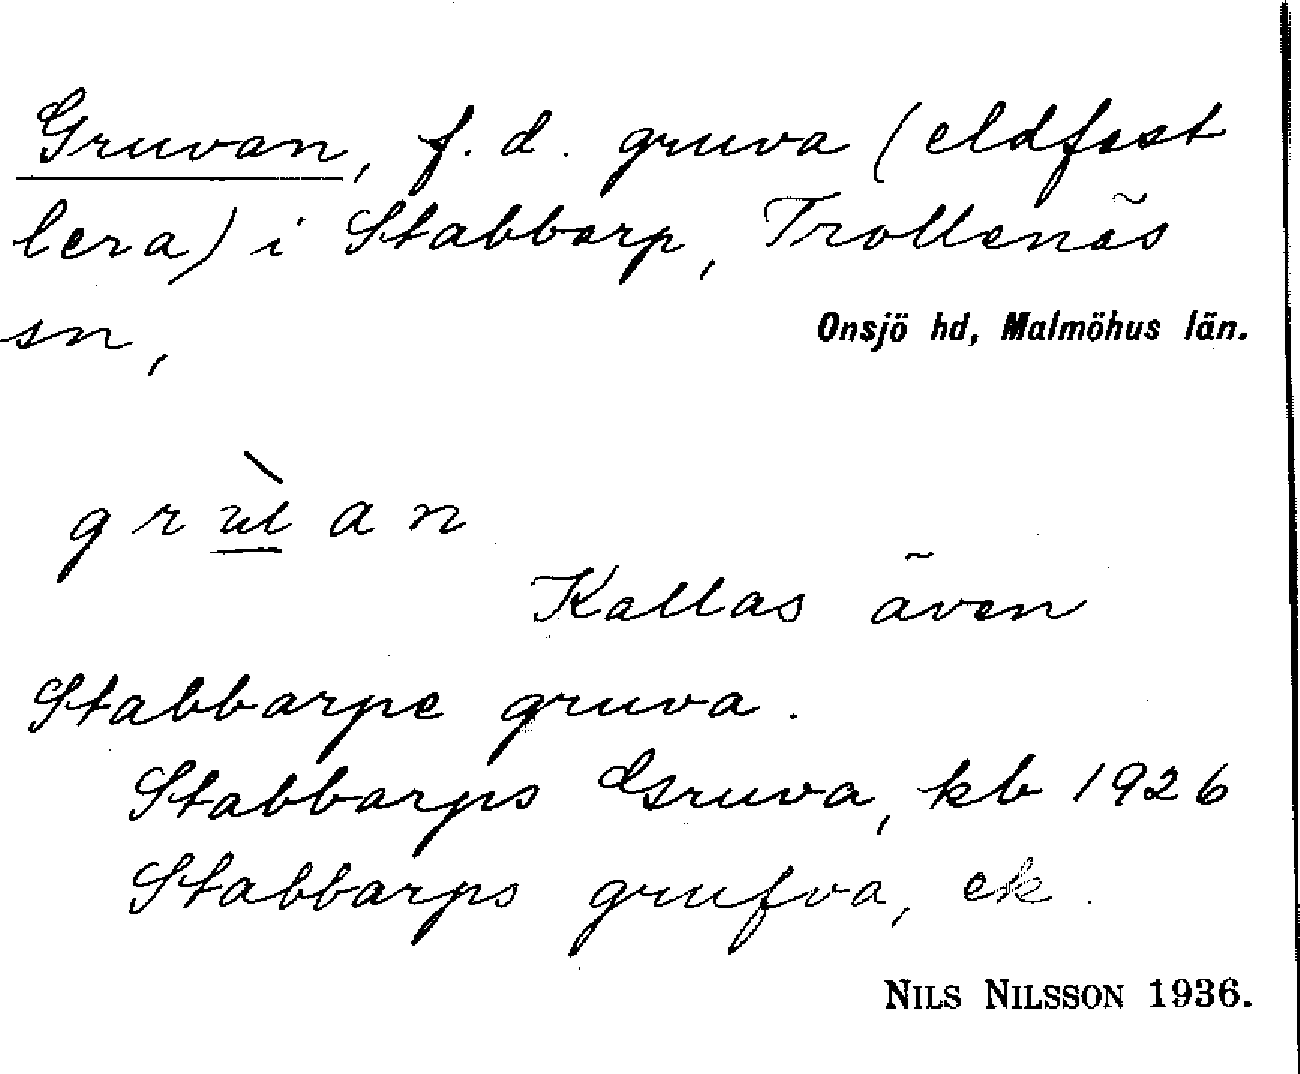 Gruvan, f. d. gruva (eldfast
lera) i Stabbarp, Trollenäs
sn,
Onsjö hd, Malmöhus län.
g r ù a n
Kallas även
Stabbarpe gruva.
Stabbarps Gruva, kb 1926
Stabbarps grufva, ek.
NILS NILSSON 1936.